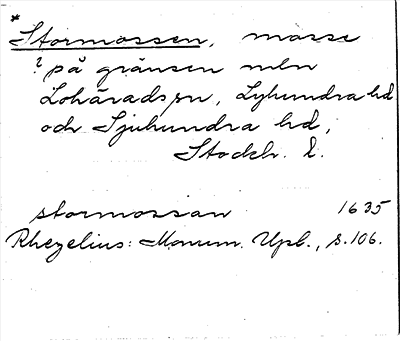 *
Stormossen, mosse
? på gränsen mln
Lohärads sn, Lyhundra hd
och Sjuhundra hd,
Stockh. l.
stormossan 1635
Rhezelius: Monum. Upl., s. 106.